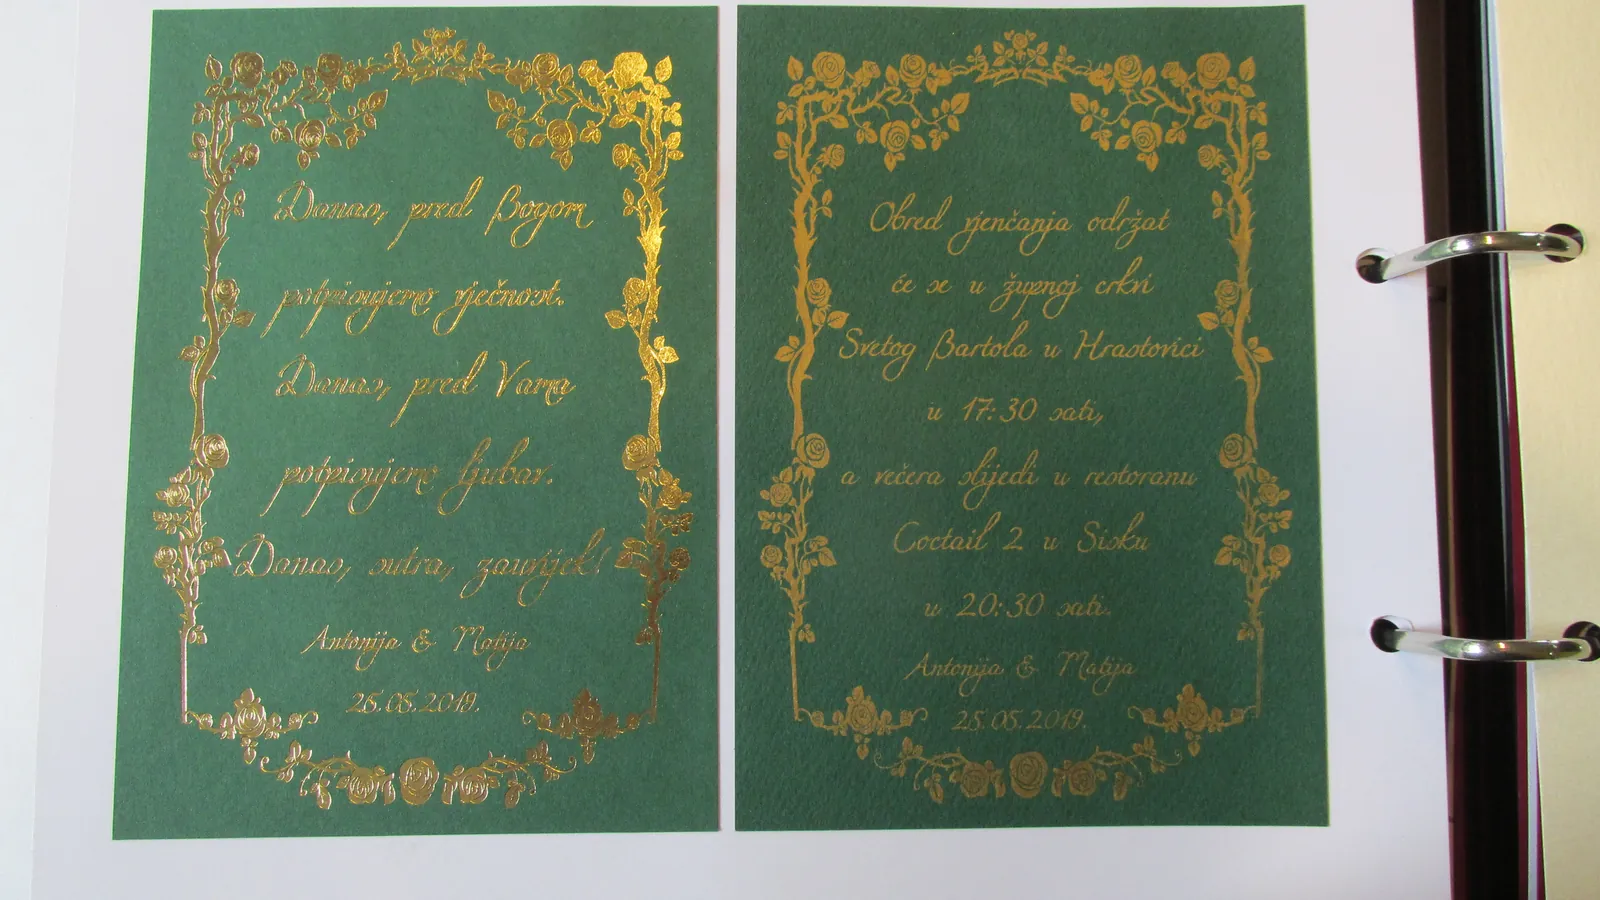 Danas, pred Bogom
potpisujemo vječnost.
Danas, pred Vama
potpisujemo ljubav.
Danas, sutra, zauvijek!
Antonija & Matija
25.05.2019.
Obred vjenčanja održat
će se u župnoj crkvi
Svetog Bartola u Hrastovici
u 17:30 sati,
a večera slijedi u restoranu
Coctail 2 u Sisku
u 20:30 sati.
Antonija & Matija
25.05.2019.